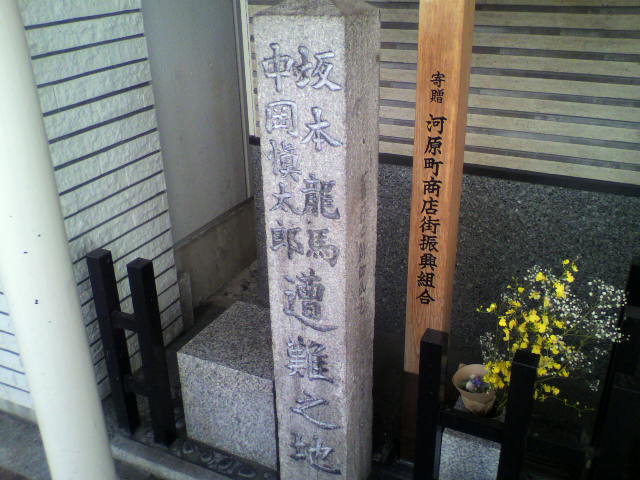 坂本龍馬
中岡慎太郎
遭難之地
寄贈 河原町商店街振興組合